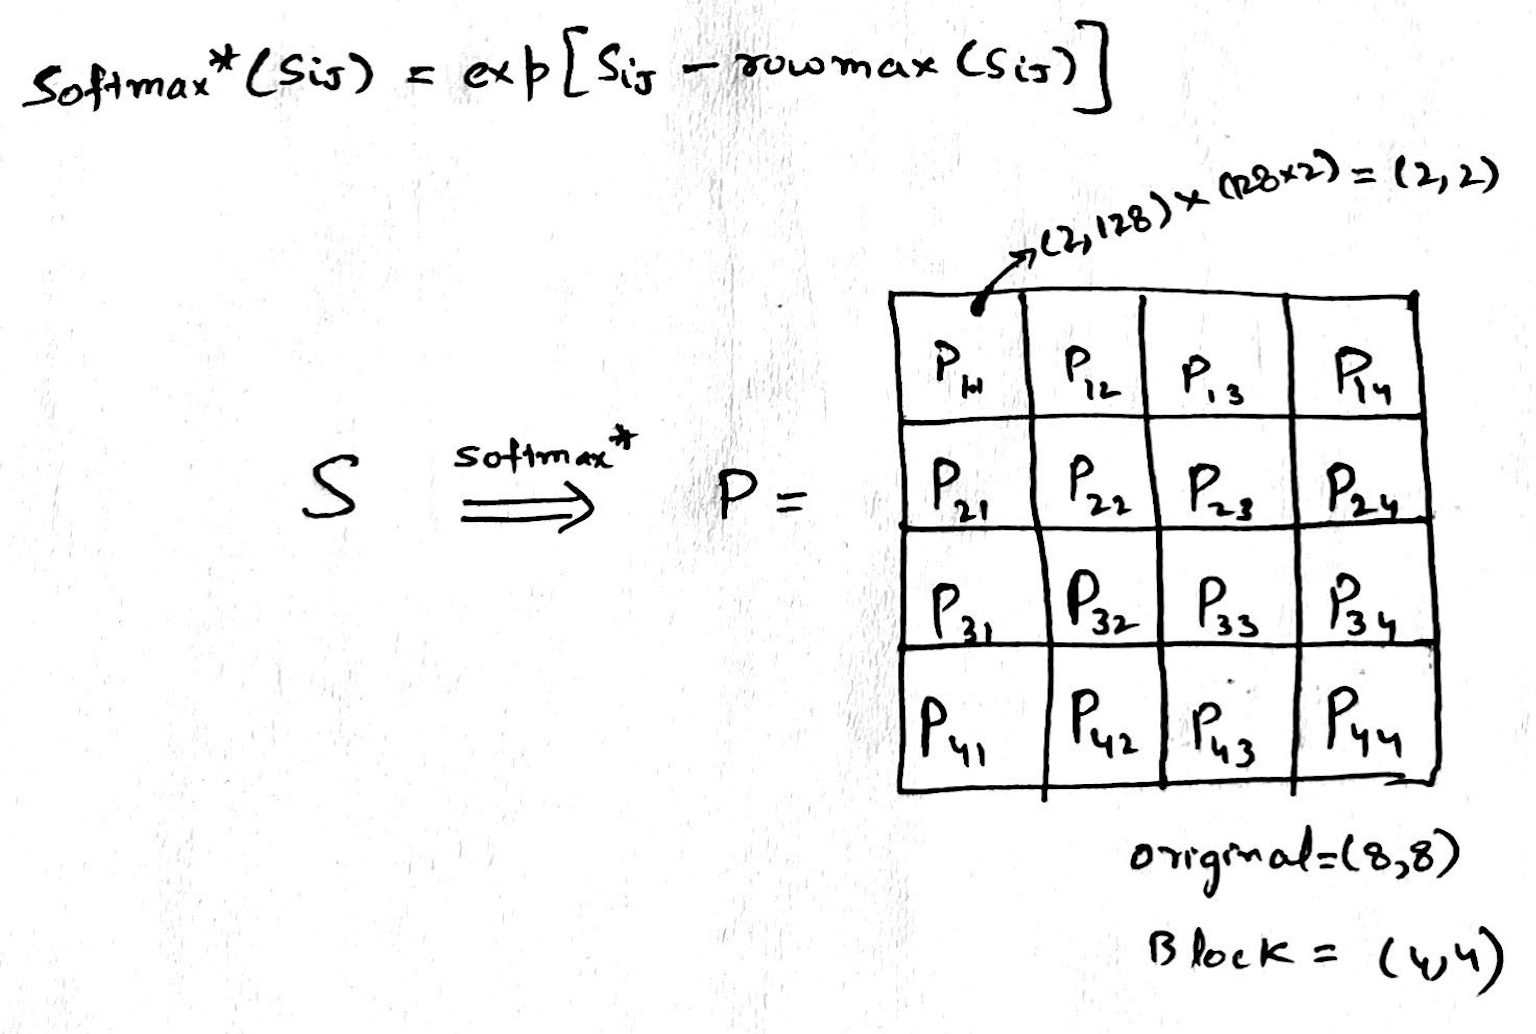 Softmax*(Sij) = exp[Sij - rowmax(Sij)]
(2,128) × (128×2) = (2,2)
S softmax* ⇒ P =
P11 P12 P13 P14
P21 P22 P23 P24
P31 P32 P33 P34
P41 P42 P43 P44
original=(8,8)
Block = (4,4)